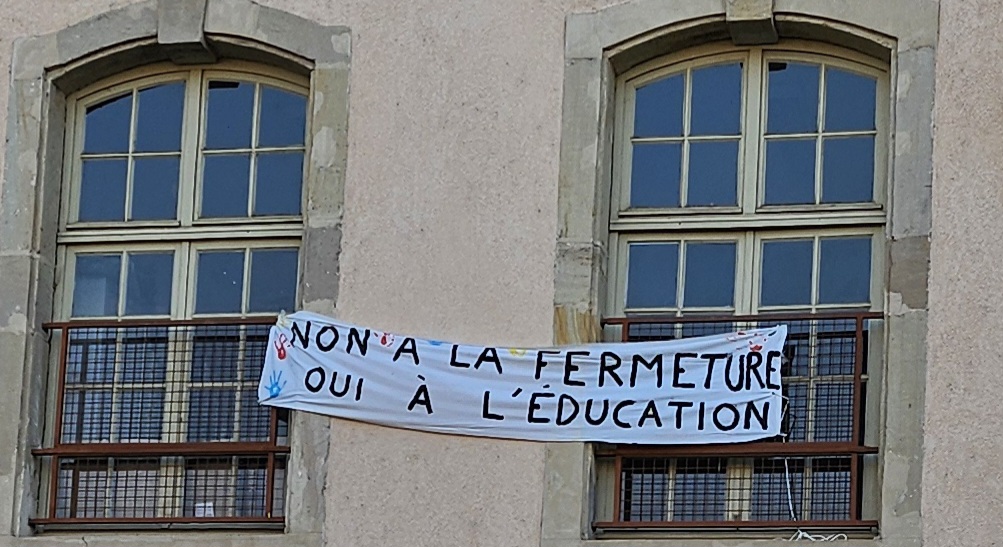 NON À LA FERMETURE
OUI À L'ÉDUCATION